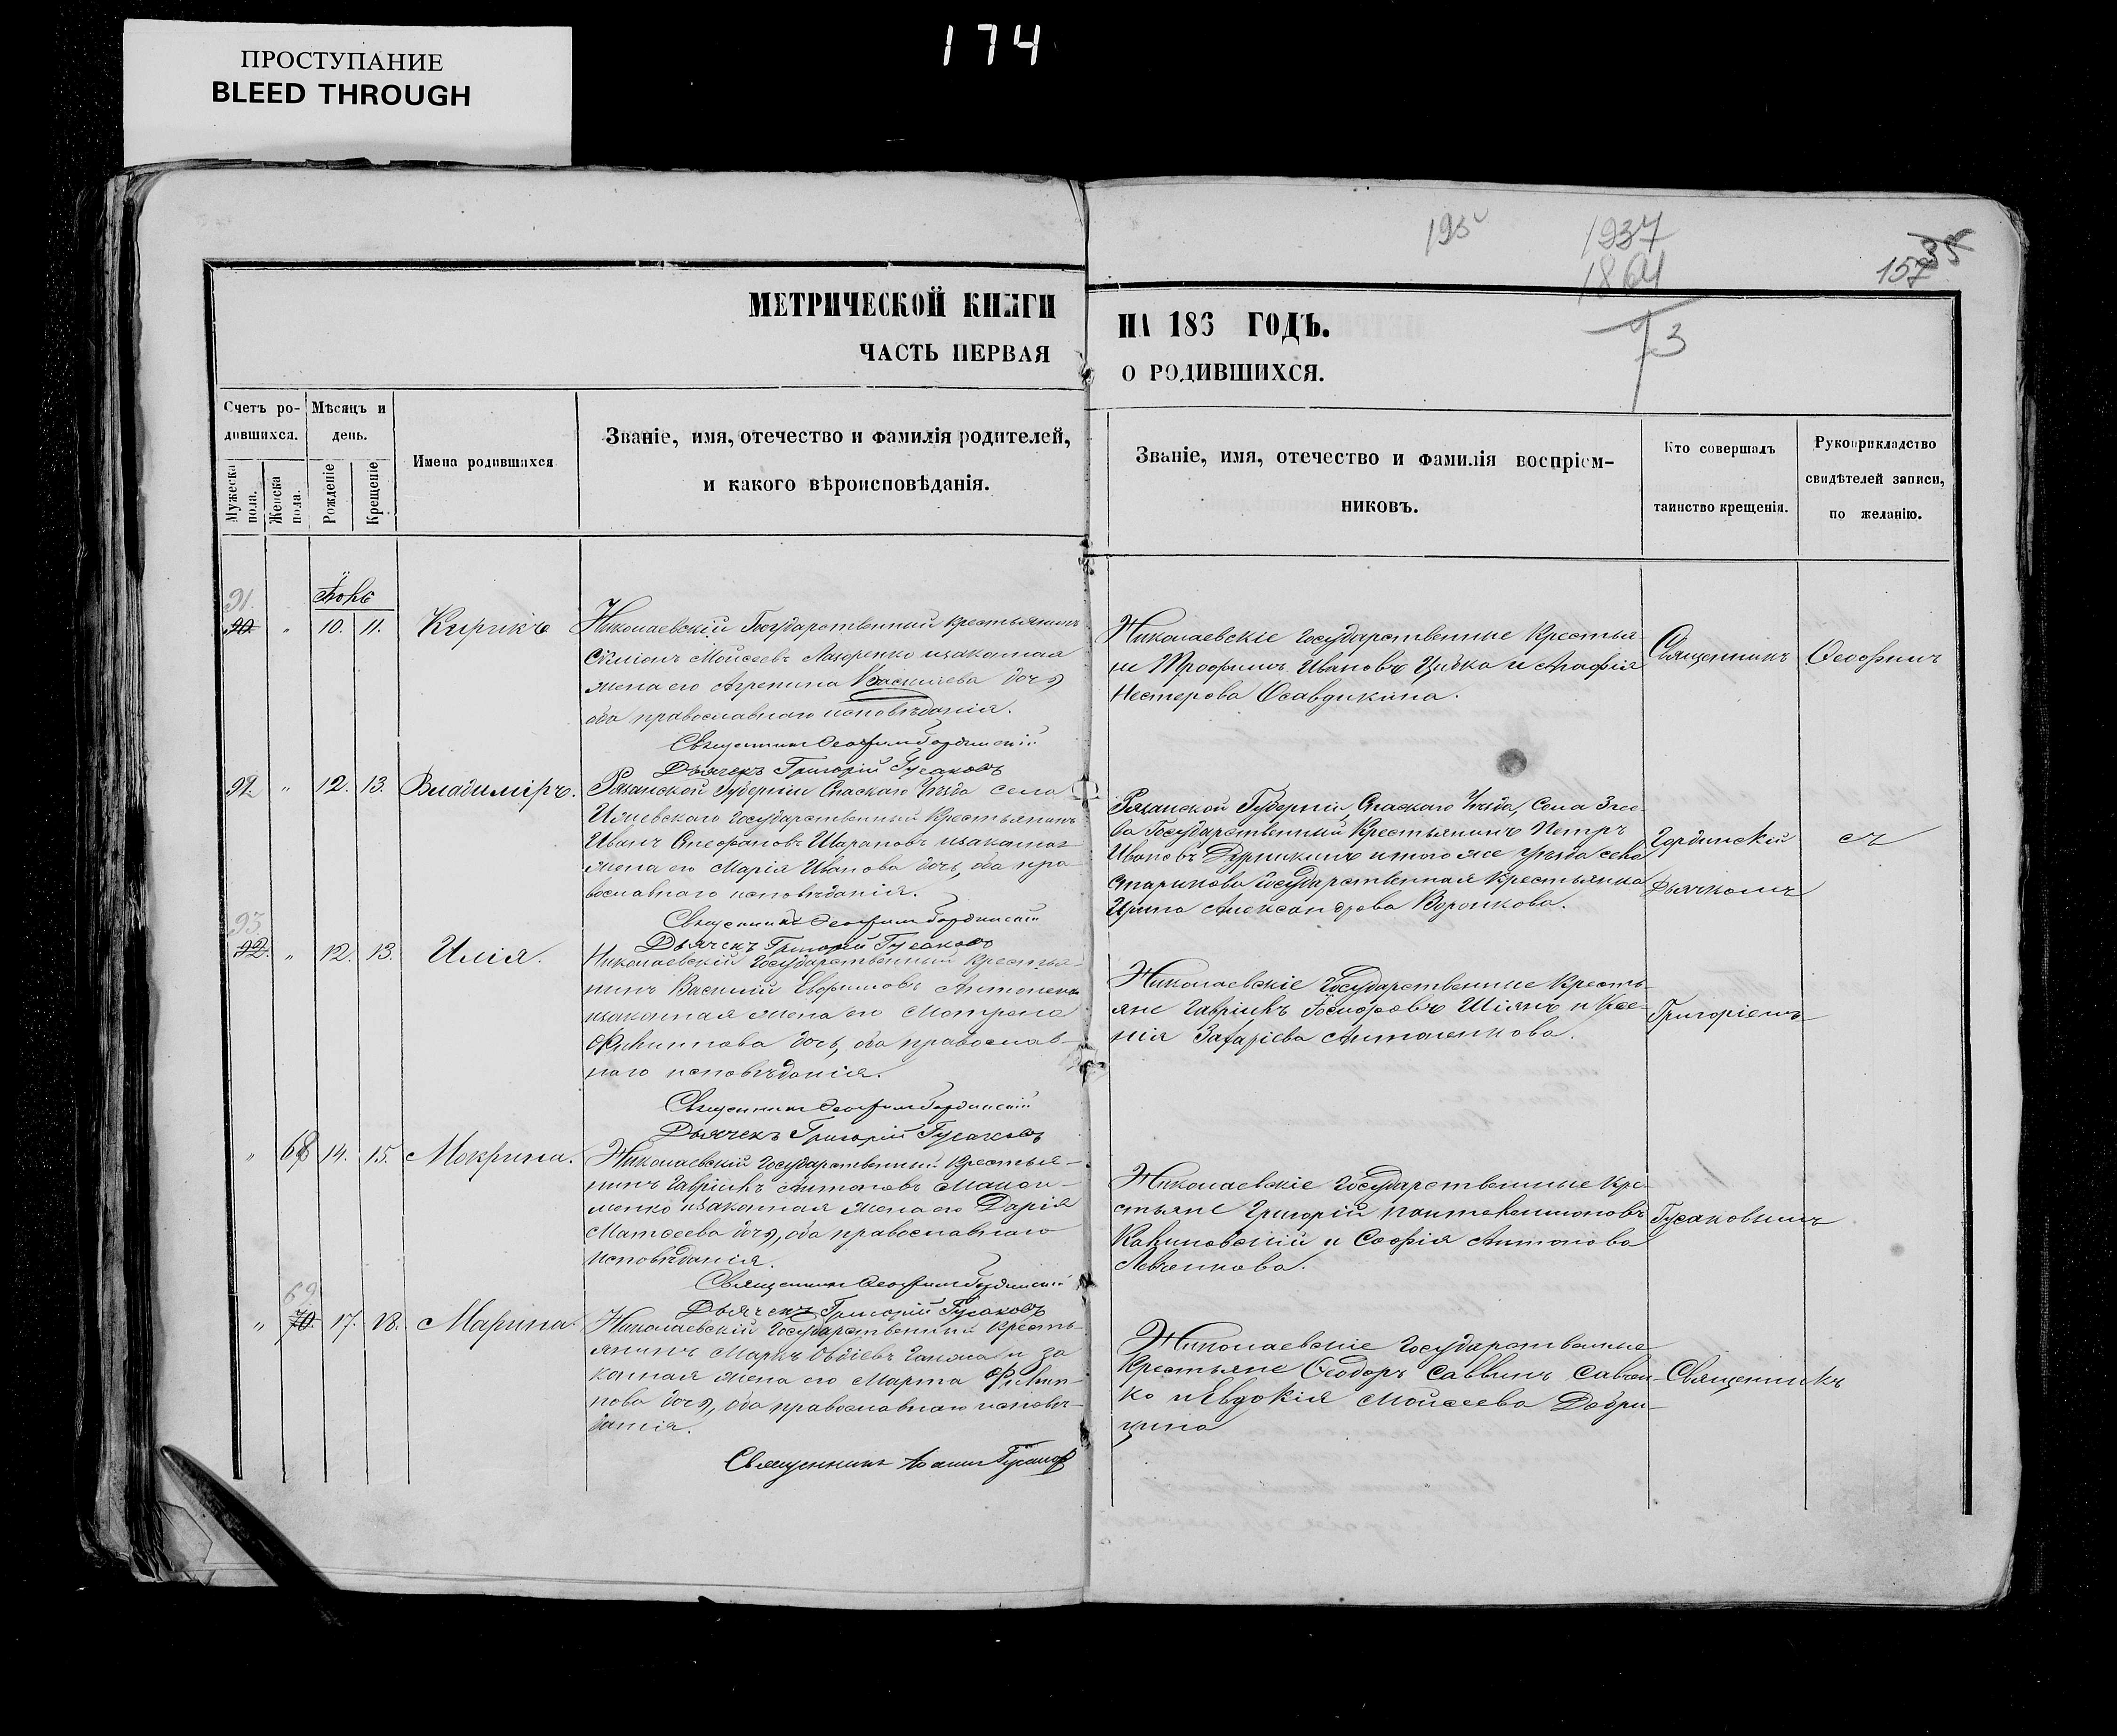 174
ПРОСТУПАНИЕ
BLEED THROUGH
195
1937
1864
73
157
35
МЕТРИЧЕСКОЙ КНИГИ
НА 186 ГОДЪ.
ЧАСТЬ ПЕРВАЯ
О РОДИВШИХСЯ.
Счетъ ро-
дившихся.
Мужеска
пола.
Женска
пола.
Мѣсяцъ и
день.
Рожденіе
Крещеніе
Имена родившихся
Званіе, имя, отечество и фамилія родителей,
и какого вѣроисповѣданія.
Званіе, имя, отечество и фамилія воспріем-
никовъ.
Кто совершалъ
таинство крещенія.
Рукоприкладство
свидѣтелей записи,
по желанію.
91.
90. " 10. 11. Кирикъ
Николаевскій Государственный крестьянинъ
Сѵмеонъ Моисеевъ Лазоренко изаконная
жена его Агрепина Василиева дочь,
оба православнаго исповѣданія.
Священникъ Ѳеофилъ Гординскій
Дьячекъ Григорій Гусаковъ
Николаевскіе Государственные Крестья-
не Трофимъ Ивановъ и Агафія
Нестерова
Священникъ
92. " 12. 13. Владиміръ.
Рязанской Губерніи Спаскаго Уѣзда села
Ижевскаго Государственный Крестьянинъ
Иванъ Стефановъ Шараповъ изаконная
жена его Марія Иванова дочь, оба пра-
вославнаго исповѣданія.
Священникъ Ѳеофилъ Гординскій
Дьячекъ Григорій Гусаковъ
Рязанской Губерніи, Спаскаго Уѣзда, Села
Государственный Крестьянинъ Петръ
Ивановъ итого же уѣзда села
Старикова Государственная Крестьянка
Ирина Александрова Воронкова.
Гординскій
съ
Дьячкомъ
93.
92. " 12. 13. Илія.
Николаевскій Государственный Крестья-
нинъ Василій Евфимовъ
изаконная жена его Матрона
Филиппова дочь, оба православ-
наго исповѣданія.
Священникъ Ѳеофилъ Гординскій
Дьячекъ Григорій Гусаковъ
Николаевскіе Государственные Кресть-
яне Гавріилъ Шіянъ и Ксе-
нія Захаріева Антоненкова.
Григоріемъ
" 68 14. 15. Мокрина.
Николаевскій Государственный Крестья-
нинъ Гавріилъ Антоновъ
изаконная жена его Дарія
Матѳеева дочь, оба православнаго
исповѣданія.
Священникъ Ѳеофилъ Гординскій
Дьячекъ Григорій Гусаковъ
Николаевскіе Государственные Кре-
стьяне Григорій Пантелеимоновъ
Калиновскій и Софія Антонова
Левченкова.
Гусаковымъ
69
" 70. 17. 18. Марина
Николаевскій Государственный Кресть-
янинъ Маркъ и за-
конная жена его Марта Филип-
пова дочь, оба православнаго исповѣ-
данія.
Священникъ Іоаннъ
Николаевскіе Государственные
Крестьяне Ѳеодоръ Саввинъ Савчен-
ко и Евдокія Моисеева Добри-
цина
Священникъ